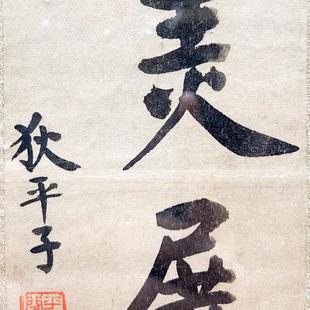 美展
狄平子